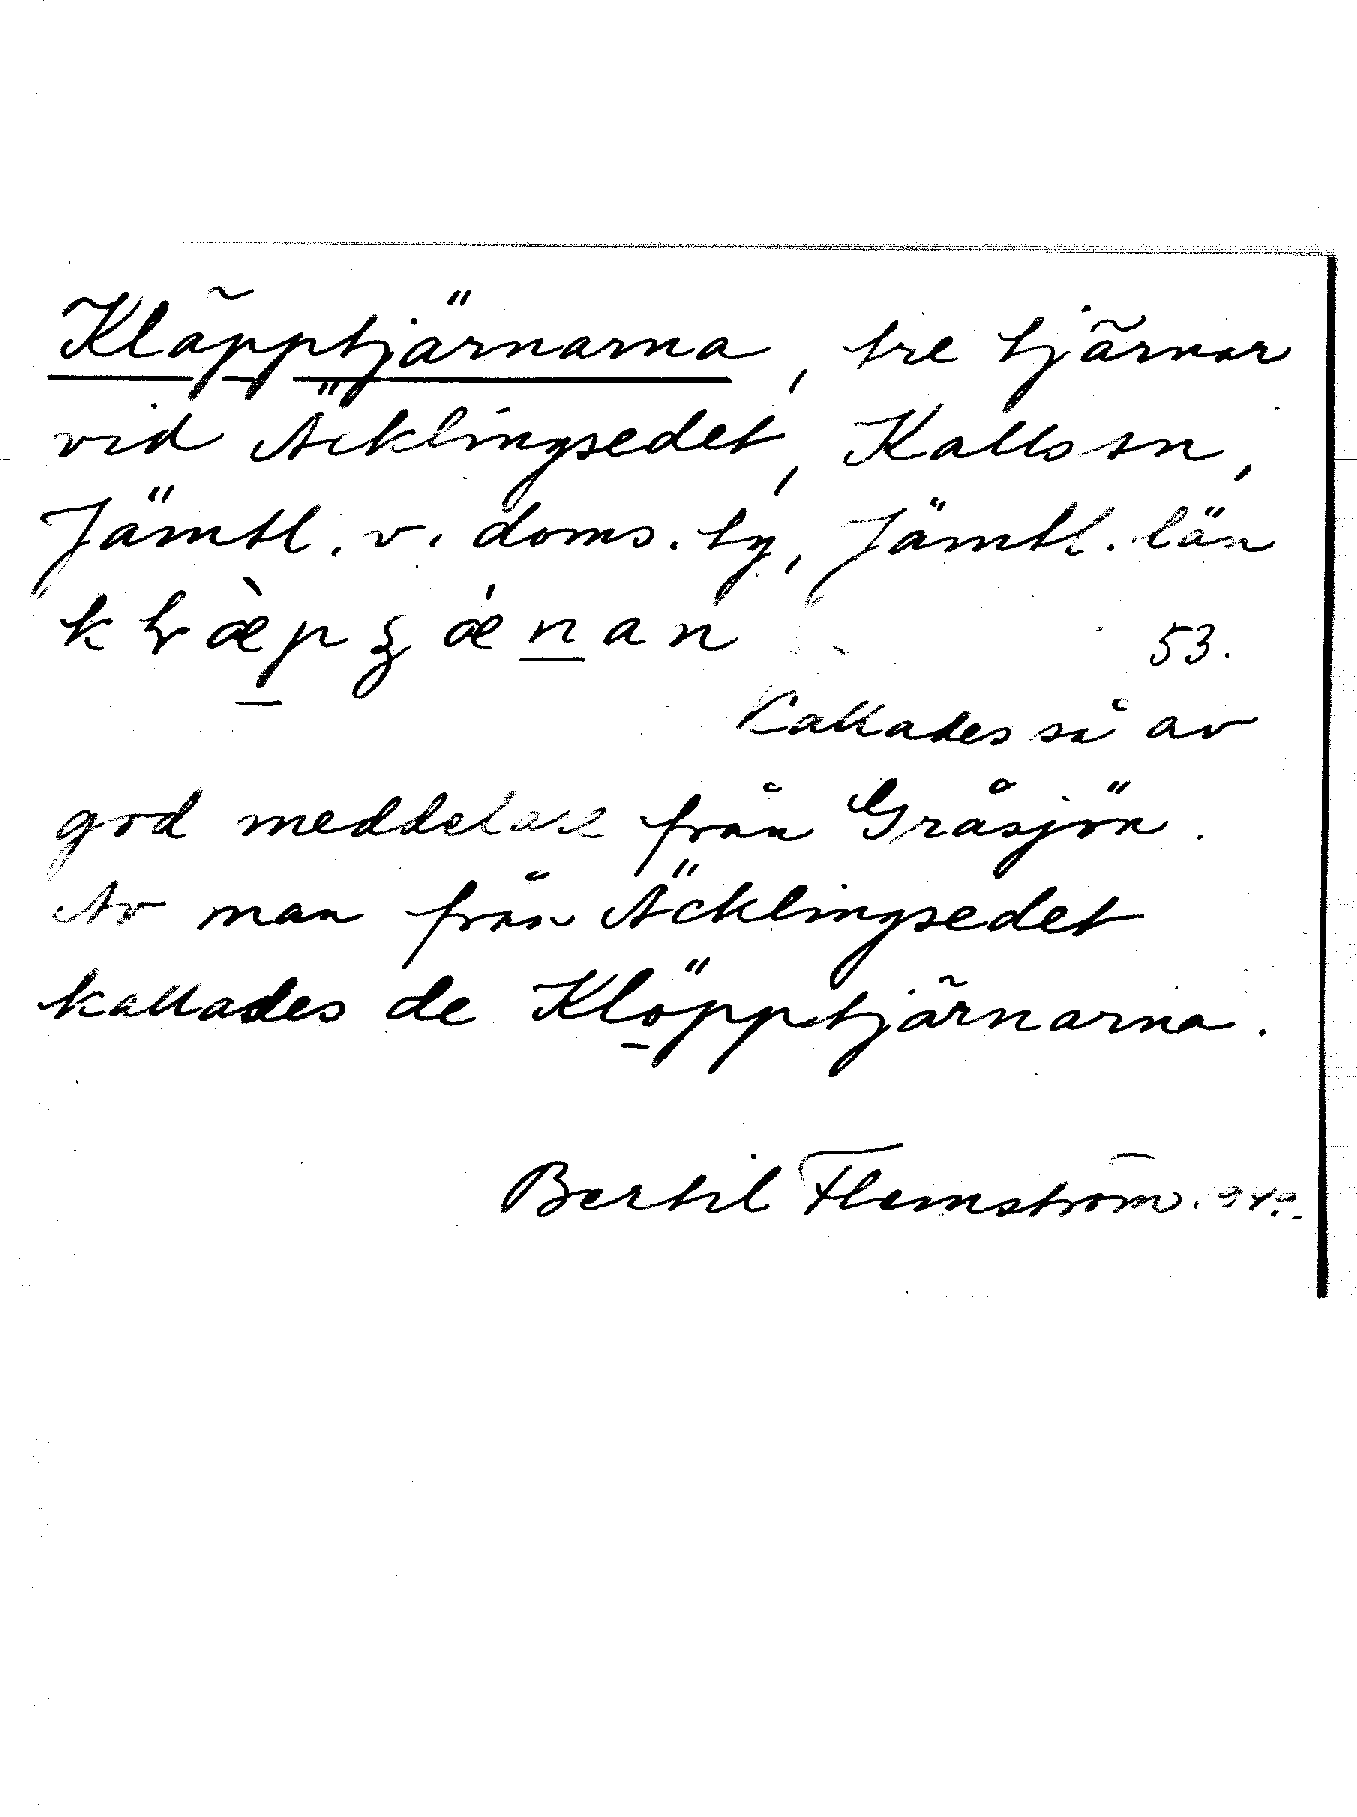 Kläpptjärnarna, tre tjärnar
vid Äcklingsedet, Kalls sn,
Jämtl. v. doms. tg, Jämtl. län
53.
Kallades så av
god meddelare från Gråsjön.
Av man från Äcklingsedet
kallades de Klöpptjärnarna.
Bertil Flemström.